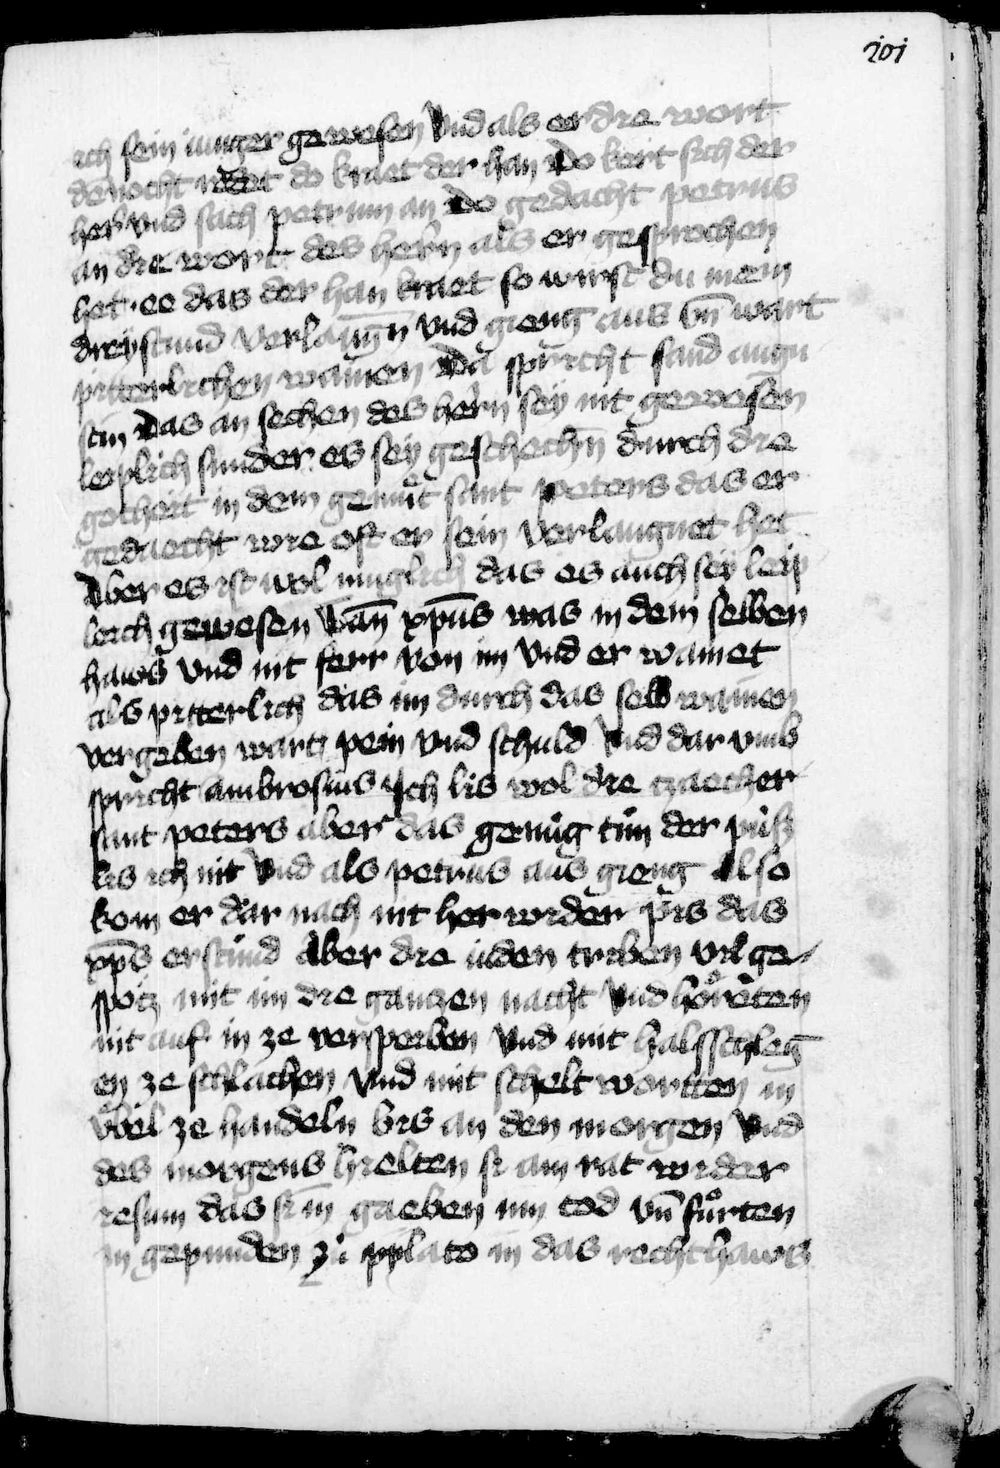 201
ich sein iunger gewesen Und als er die wort
dennocht redet do kraet der han Do kert sich der
her und sach petrum an Do gedacht petrus
an die wort des hern als er gesprochen
het · ee das der han kraet so wirst du mein
dreystund verlaugn̄ und gieng aus vn̄ wart
pitterlichen wainen Da spricht sand augu
stin Das an sechen des hern sey nit gewesen
leiplich sunder es sey geschechn̄ durch die
gotheit in dem gemut sant peters das er
gedaecht wie oft er sein verlaugnet het
Aber es ist wol muglich das es auch sey leip
leich gewesen Wan̄ xp̄us was in dem selben
haws und nit ferr von im Und er wainet
als pitterlich das im durch das selb wainen
vergeben wart pein und schuld Und dar umb
spricht ambrosius Ich lis wol die tzaecher
sant peters aber das genug tun der pusz
lis ich nit Und als petrus aus gieng Also
kom er dar nach nit her wider pis das
xp̄s erstund Aber die iuden triben vil ge
spotz mit im die gantzen nacht Und horeten
nit auf in ze verspeiben Und mit halsschleg
en ze schlachen Und mit schelt wortten in
vbel ze handeln bis an den morgen Und
des morgens hielten si ain rat wider
iesum das si in gaeben inn tod vn̄ furten
in gepunden zu pylato in das rechthaws